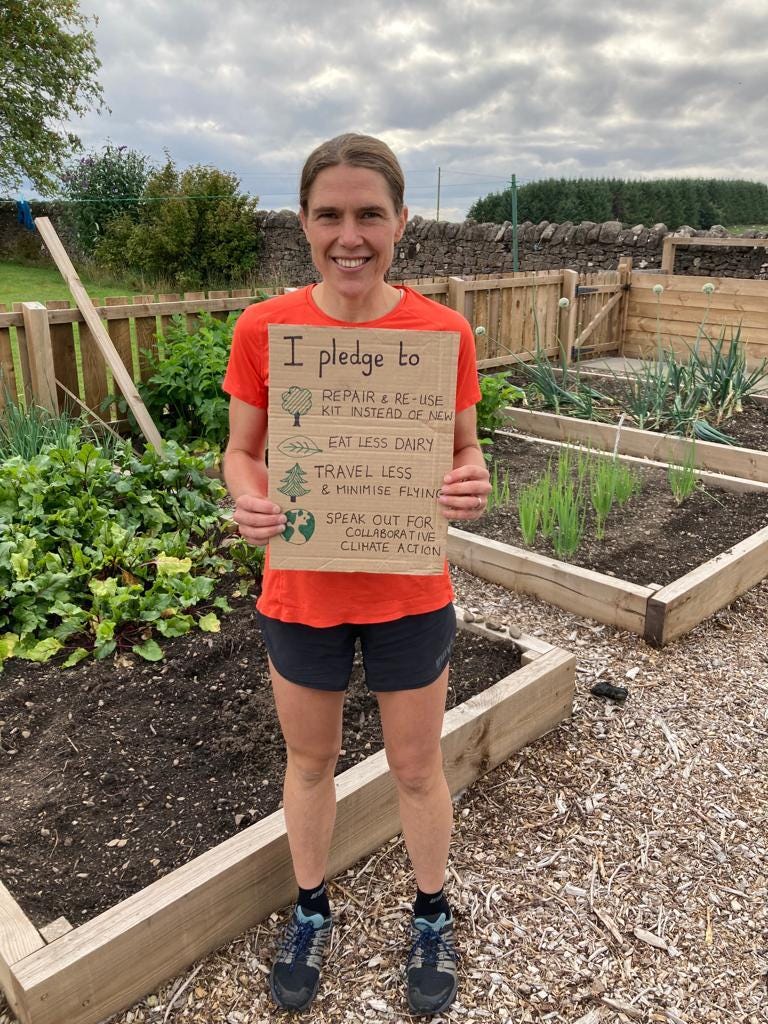 I pledge to
REPAIR & RE-USE
KIT INSTEAD OF NEW
EAT LESS DAIRY
TRAVEL LESS
& MINIMISE FLYING
SPEAK OUT FOR
COLLABORATIVE
CLIMATE ACTION